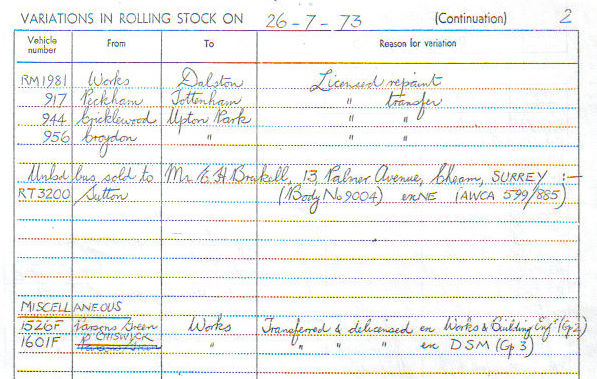 VARIATIONS IN ROLLING STOCK ON 26-7-73 (Continuation) 2
Vehicle number From To Reason for variation
RM1981 Works Dalston Licensed repaint
917 Peckham Tottenham " transfer
944 Cricklewood Upton Park " "
956 Croydon " " "
Unlsd bus sold to Mr E H Brakell, 13 Palmer Avenue, Cheam, SURREY :-
RT3200 Sutton (Body No 9004) ex NE (AWCA 599/885)
MISCELLANEOUS
1526F Parsons Green Works Transferred & delicensed ex Works & Building Engr (Gp2)
1601F CHISWICK " " " " ex DSM (Gp 3)